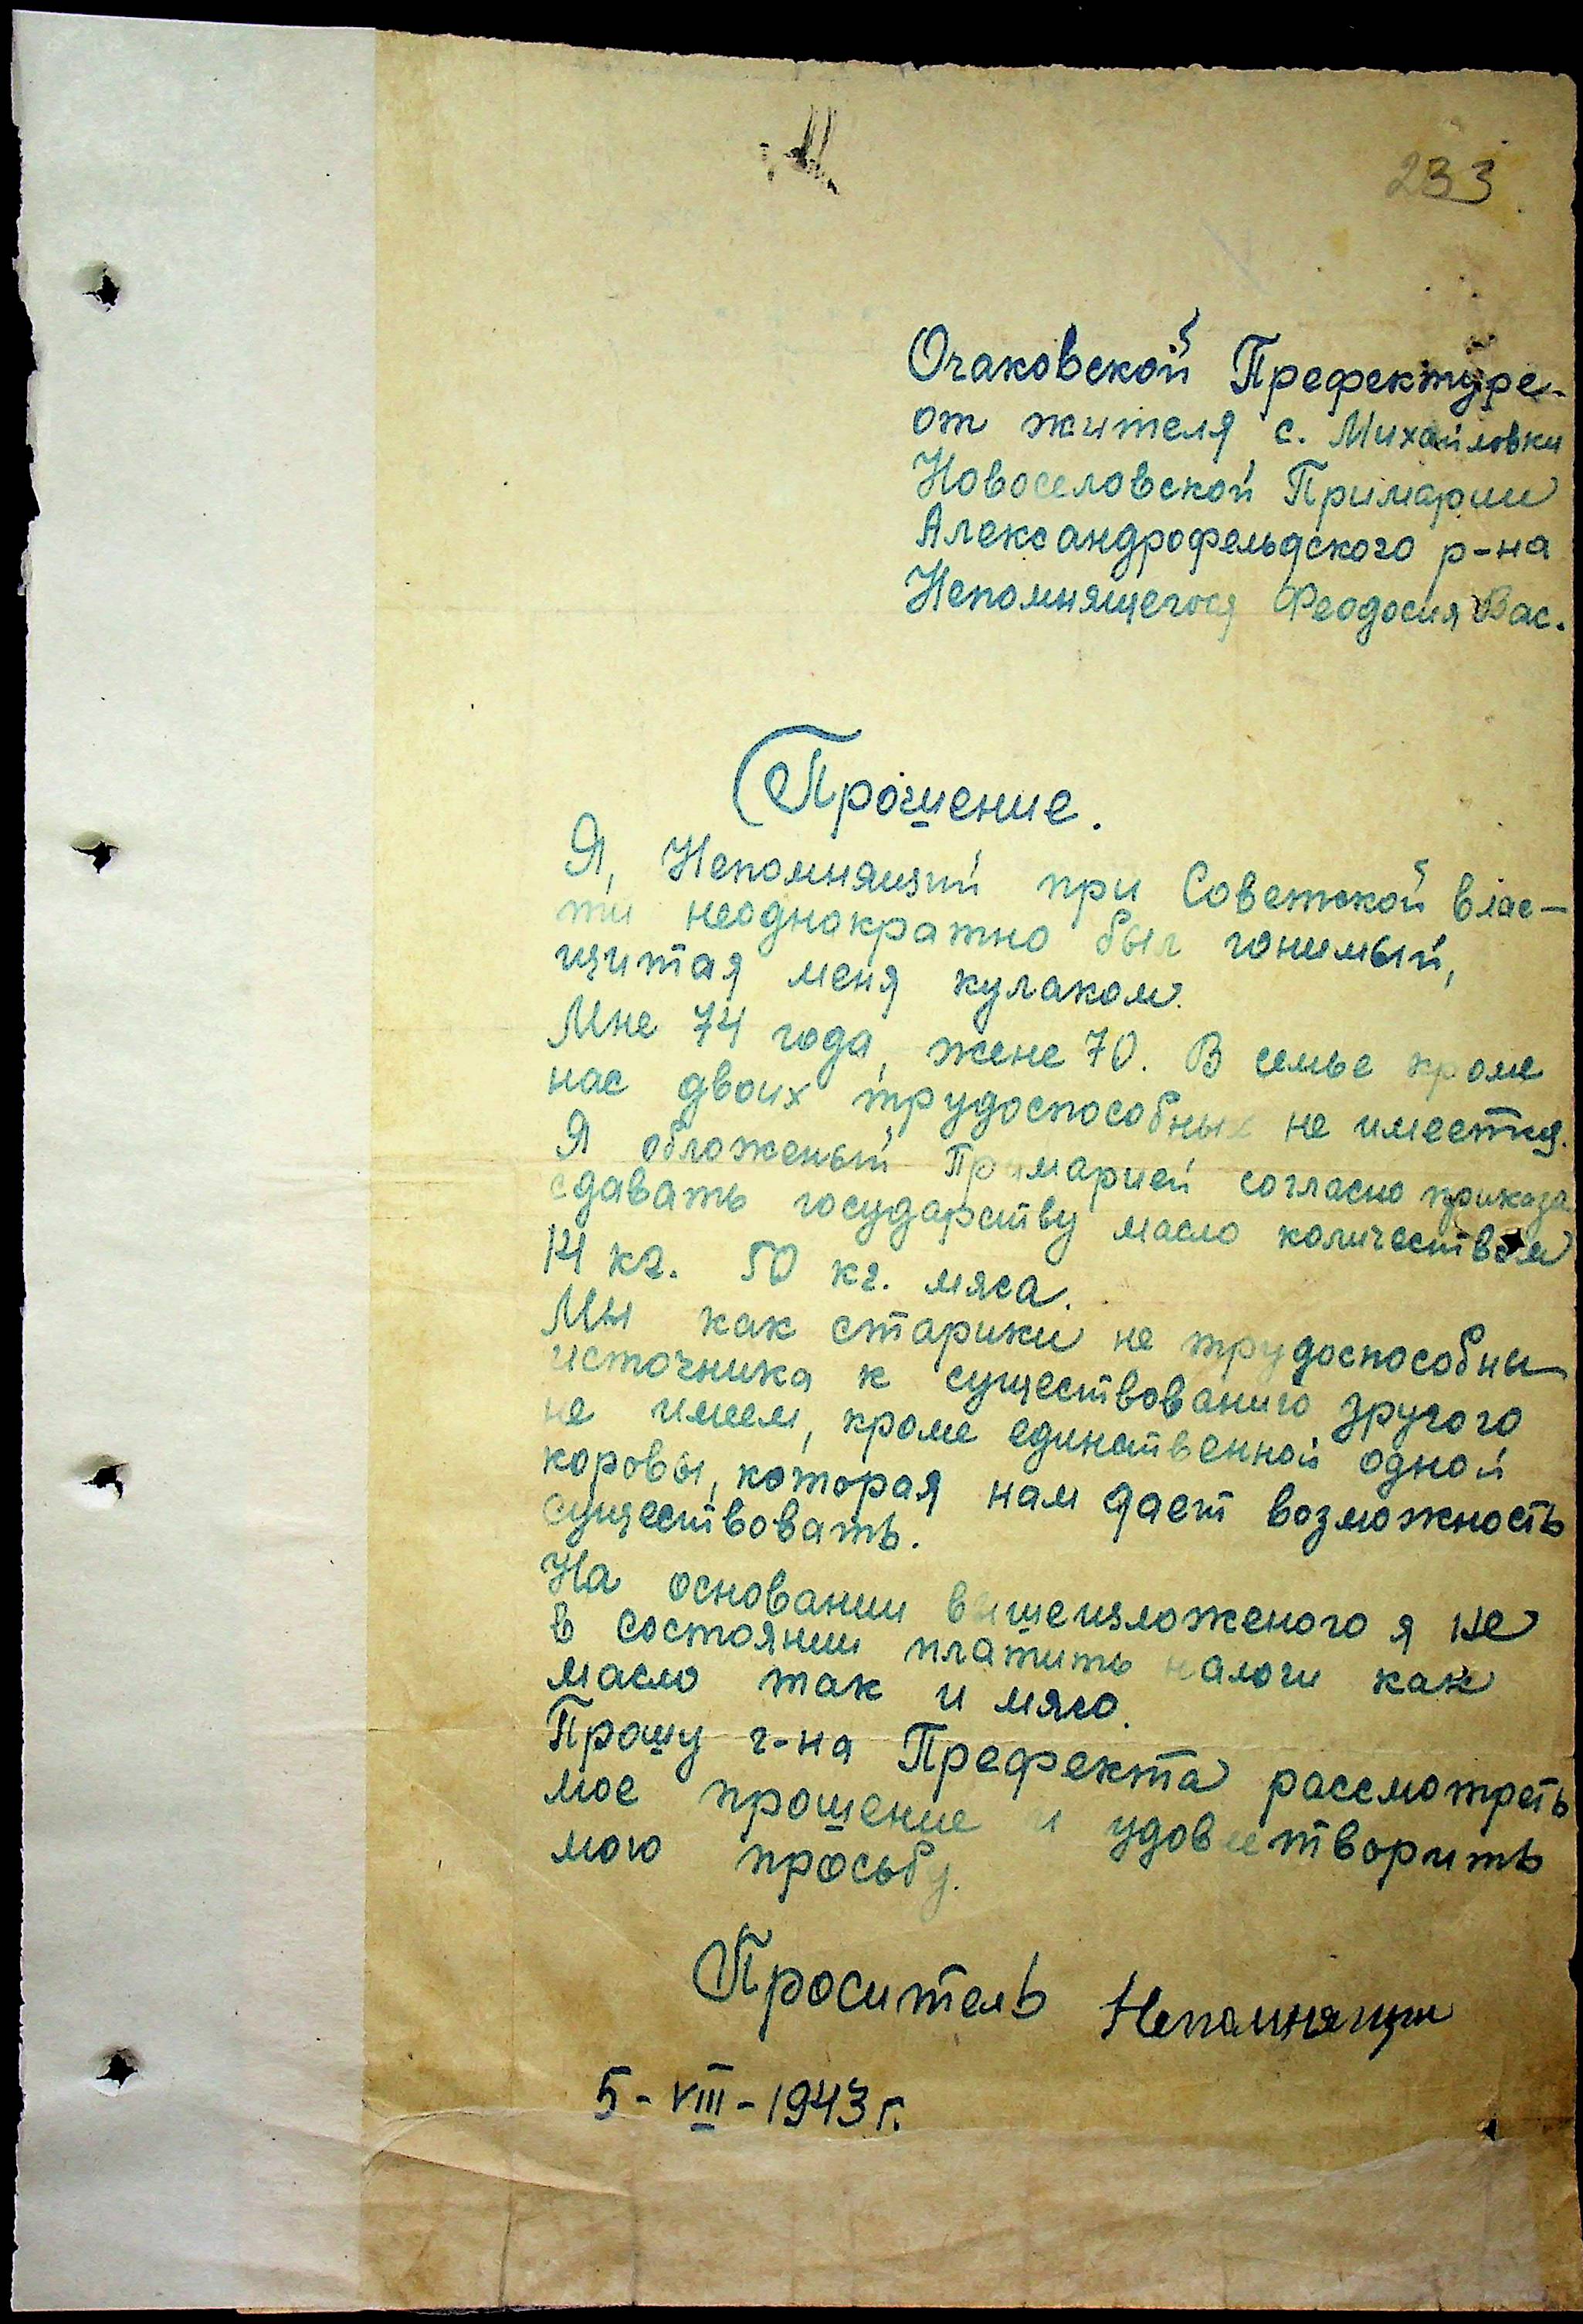 233
Очаковской Префектуре
от жителя с. Михайловки
Новоселовской Примарии
Александрофельдского р-на
Непомнящегося Феодосия Вас.
Прошение.
Я, Непомнящий при Советской влас-
ти неоднократно был гонимый,
щитая меня кулаком.
Мне 74 года, жене 70. В семье кроме
нас двоих трудоспособных не имеется.
Я обложеный Примарией согласно приказа
сдавать государству масло количеством
14 кг. 50 кг. мяса.
Мы как старики не трудоспособны
источника к существованию другого
не имеем, кроме единственной одной
коровы, которая нам дает возможность
существовать.
На основании вышеизложеного я не
в состоянии платить налоги как
масло так и мясо.
Прошу г-на Префекта рассмотреть
мое прошение и удовлетворить
мою просьбу.
Проситель Непомнящий
5-VIII-1943 г.